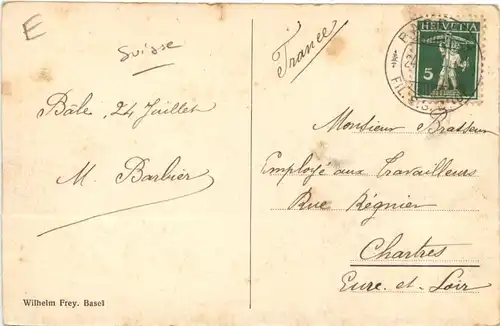 E
Suisse
Bâle, 24 Juillet
M. Barbier
Wilhelm Frey. Basel
(France)
HELVETIA
5
FIL.
Monsieur Brasseur
Employé aux Travailleurs
Rue Régnier
Chartres
Eure-et-Loir